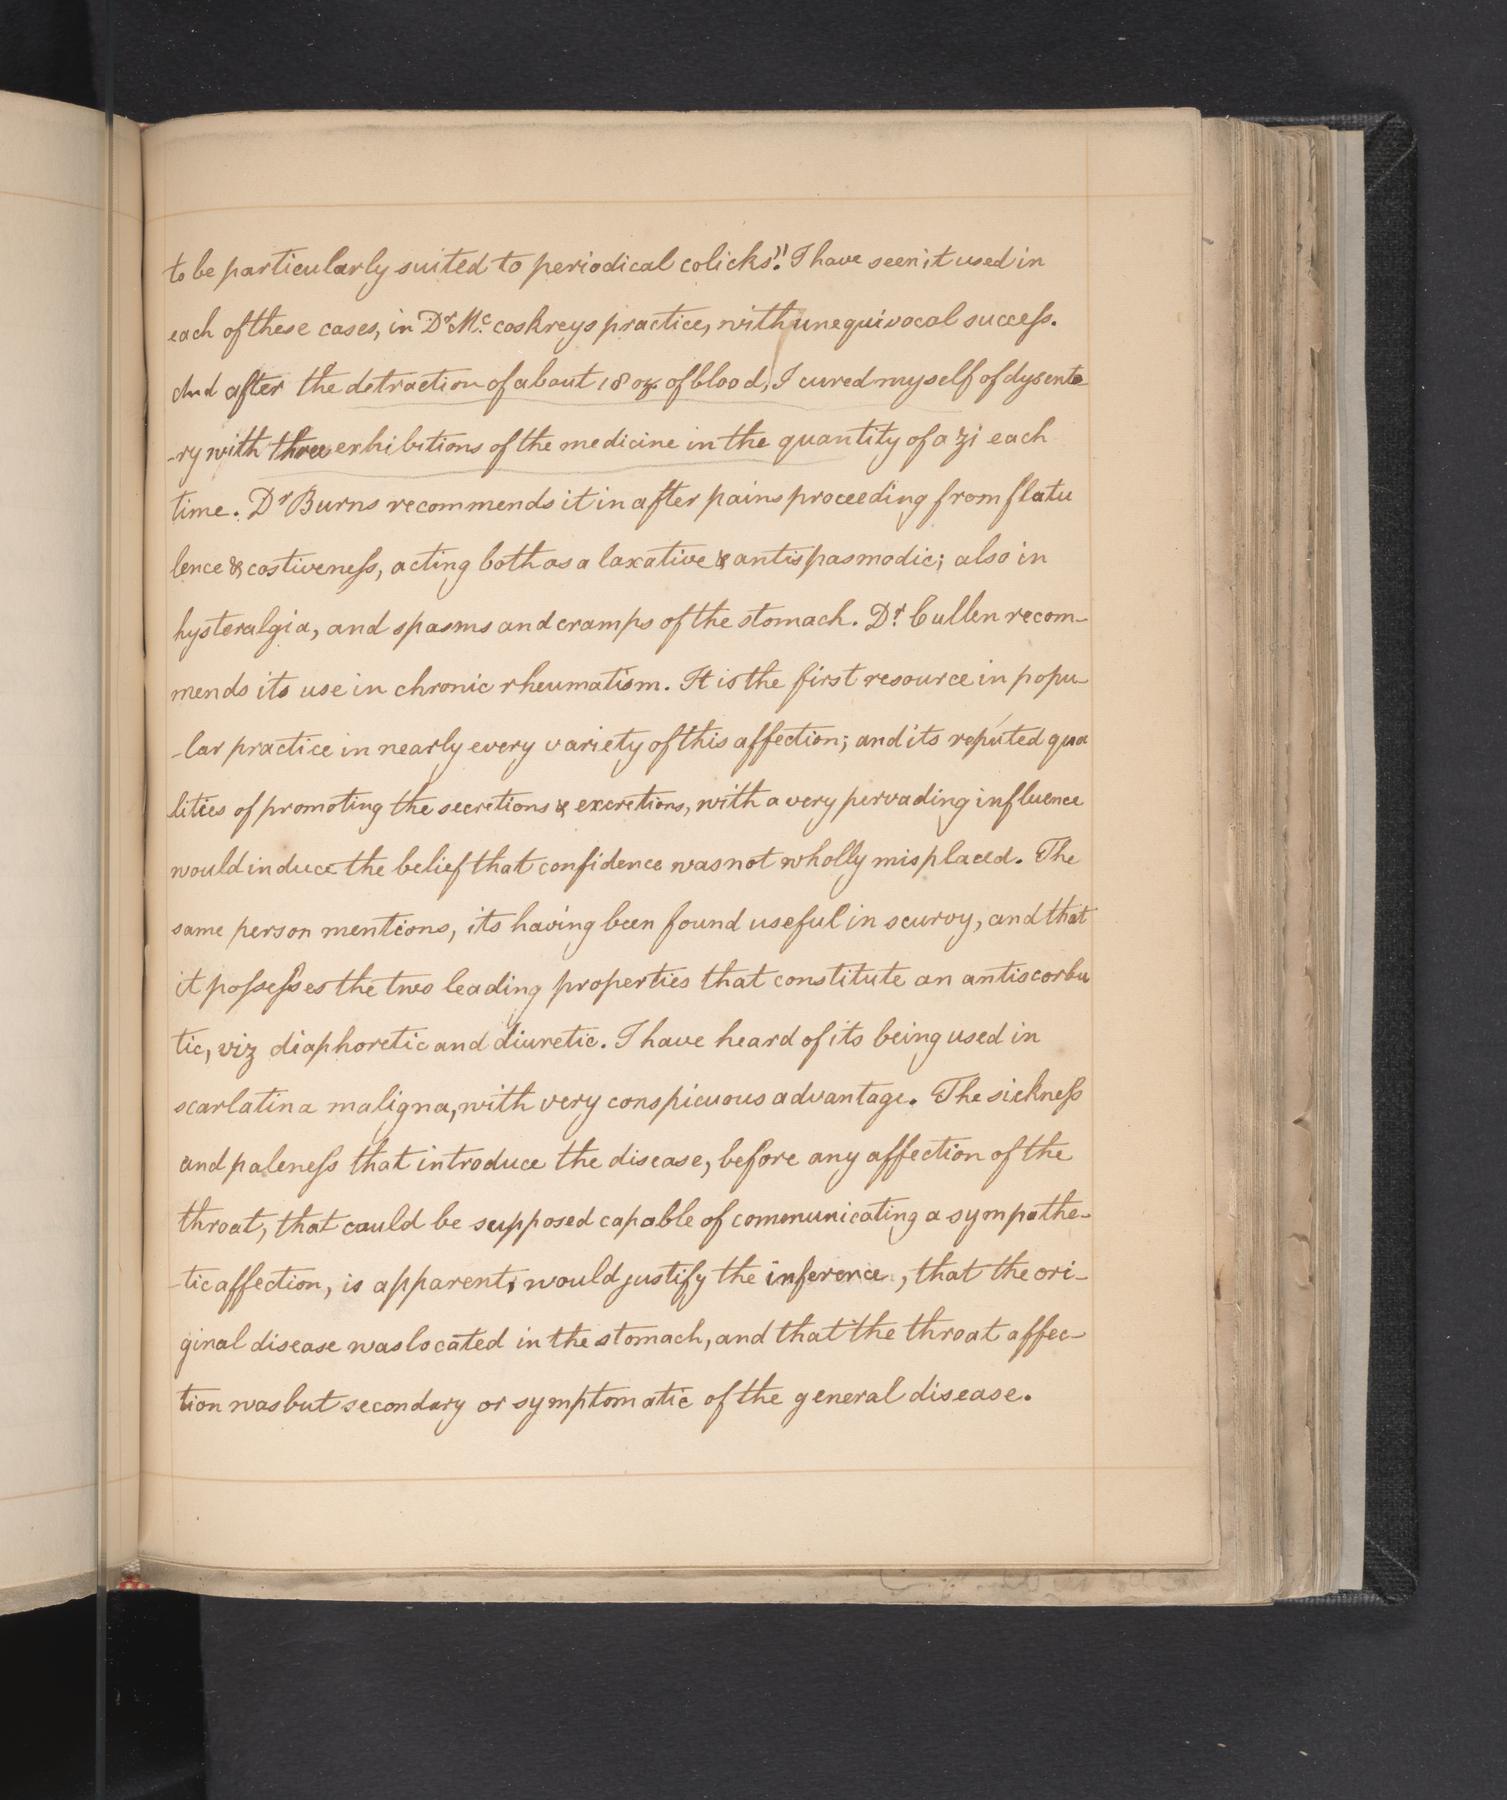 to be particularly suited to periodical colicks". I have seen it used in
each of these cases, in Dr. Mc.coskreys practice, with unequivocal success.
And after the detraction of about 18 oz. of blood, I cured myself of dysente
-ry with three exhibitions of the medicine in the quantity of a ʒi each
time. Dr Burns recommends it in after pains proceeding from flatu
lence & costiveness, acting both as a laxative & antispasmodic; also in
hysteralgia, and spasms and cramps of the stomach. Dr. Cullen recom-
mends its use in chronic rheumatism. It is the first resource in popu-
-lar practice in nearly every variety of this affection; and its reputed qua
lities of promoting the secretions & excretions, with a very pervading influence
would induce the belief that confidence was not wholly misplaced. The
same person mentions, its having been found useful in scurvy, and that
it possesses the two leading properties that constitute an antiscorbu
tic, viz diaphoretic and diuretic. I have heard of its being used in
scarlatina maligna, with very conspicuous advantage. The sickness
and paleness that introduce the disease, before any affection of the
throat, that could be supposed capable of communicating a sympathe-
-tic affection, is apparent, would justify the inference, that the ori-
ginal disease was located in the stomach, and that the throat affec-
tion was but secondary or symptomatic of the general disease.